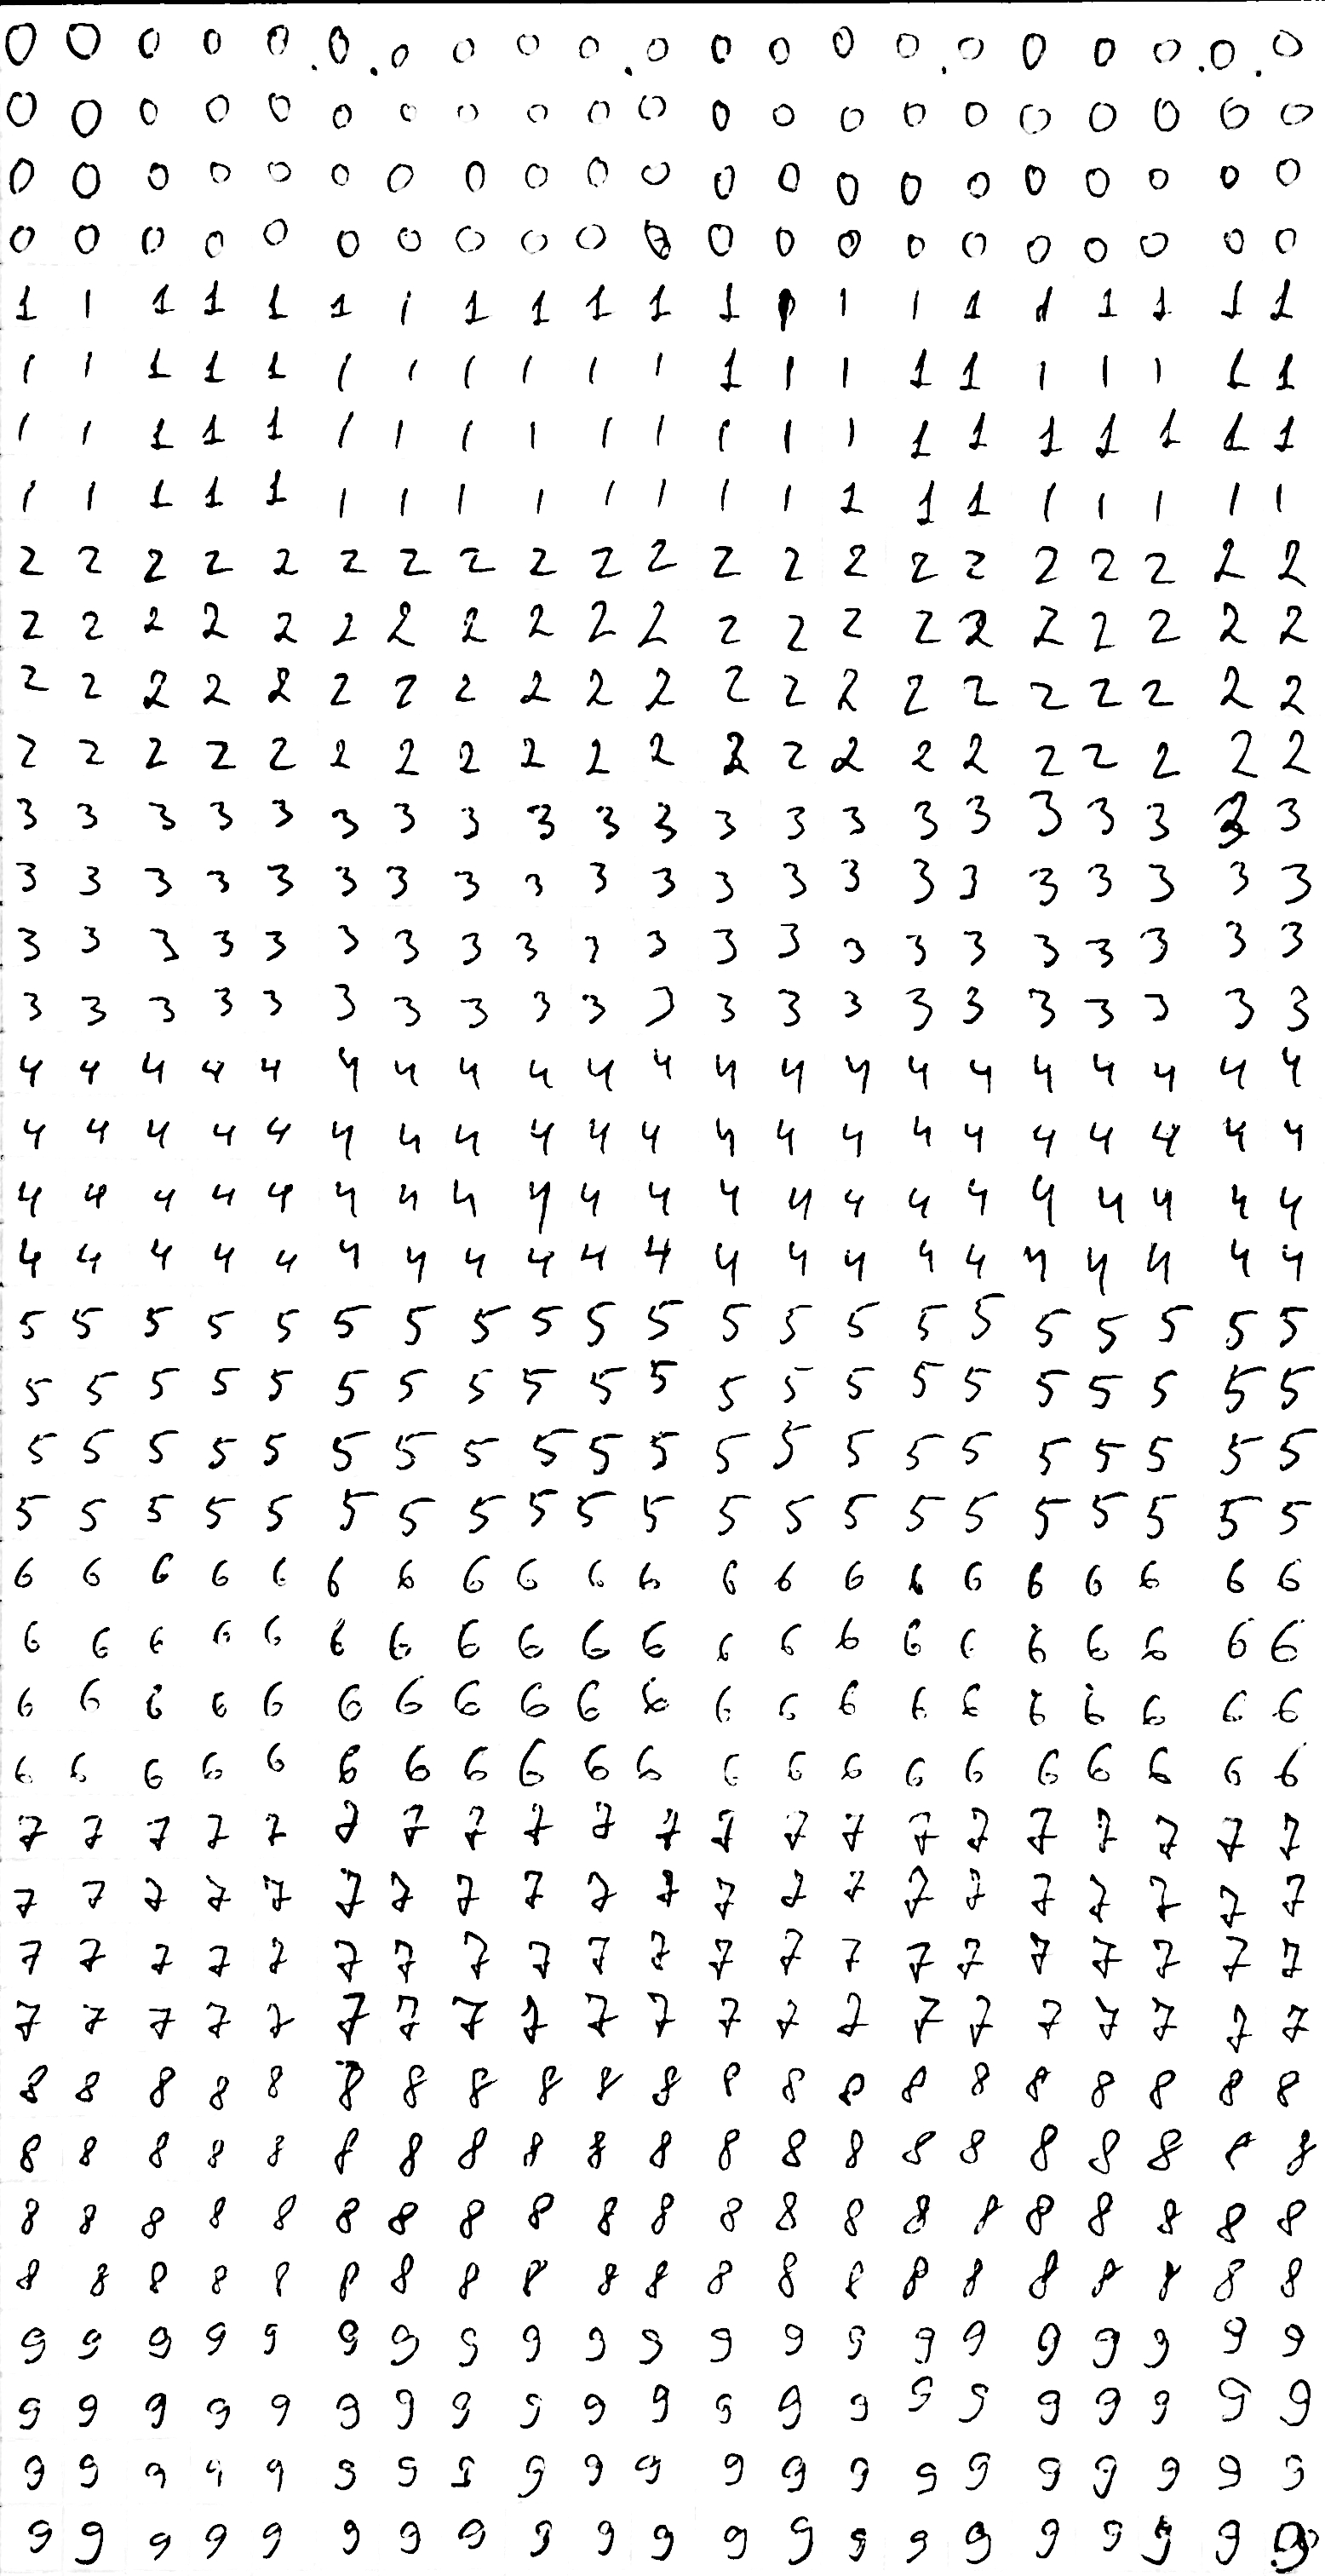 0 0 0 0 0 0 0 0 0 0 0 0 0 0 0 0 0 0 0 0 0
0 0 0 0 0 0 0 0 0 0 0 0 0 0 0 0 0 0 0 0 0
0 0 0 0 0 0 0 0 0 0 0 0 0 0 0 0 0 0 0 0 0
0 0 0 0 0 0 0 0 0 0 0 0 0 0 0 0 0 0 0 0 0
1 1 1 1 1 1 1 1 1 1 1 1 1 1 1 1 1 1 1 1 1
1 1 1 1 1 1 1 1 1 1 1 1 1 1 1 1 1 1 1 1 1
1 1 1 1 1 1 1 1 1 1 1 1 1 1 1 1 1 1 1 1 1
1 1 1 1 1 1 1 1 1 1 1 1 1 1 1 1 1 1 1 1 1
2 2 2 2 2 2 2 2 2 2 2 2 2 2 2 2 2 2 2 2 2
2 2 2 2 2 2 2 2 2 2 2 2 2 2 2 2 2 2 2 2 2
2 2 2 2 2 2 2 2 2 2 2 2 2 2 2 2 2 2 2 2 2
2 2 2 2 2 2 2 2 2 2 2 2 2 2 2 2 2 2 2 2 2
3 3 3 3 3 3 3 3 3 3 3 3 3 3 3 3 3 3 3 3 3
3 3 3 3 3 3 3 3 3 3 3 3 3 3 3 3 3 3 3 3 3
3 3 3 3 3 3 3 3 3 3 3 3 3 3 3 3 3 3 3 3 3
3 3 3 3 3 3 3 3 3 3 3 3 3 3 3 3 3 3 3 3 3
4 4 4 4 4 4 4 4 4 4 4 4 4 4 4 4 4 4 4 4 4
4 4 4 4 4 4 4 4 4 4 4 4 4 4 4 4 4 4 4 4 4
4 4 4 4 4 4 4 4 4 4 4 4 4 4 4 4 4 4 4 4 4
4 4 4 4 4 4 4 4 4 4 4 4 4 4 4 4 4 4 4 4 4
5 5 5 5 5 5 5 5 5 5 5 5 5 5 5 5 5 5 5 5 5
5 5 5 5 5 5 5 5 5 5 5 5 5 5 5 5 5 5 5 5 5
5 5 5 5 5 5 5 5 5 5 5 5 5 5 5 5 5 5 5 5 5
5 5 5 5 5 5 5 5 5 5 5 5 5 5 5 5 5 5 5 5 5
6 6 6 6 6 6 6 6 6 6 6 6 6 6 6 6 6 6 6 6 6
6 6 6 6 6 6 6 6 6 6 6 6 6 6 6 6 6 6 6 6 6
6 6 6 6 6 6 6 6 6 6 6 6 6 6 6 6 6 6 6 6 6
6 6 6 6 6 6 6 6 6 6 6 6 6 6 6 6 6 6 6 6 6
7 7 7 7 7 7 7 7 7 7 7 7 7 7 7 7 7 7 7 7 7
7 7 7 7 7 7 7 7 7 7 7 7 7 7 7 7 7 7 7 7 7
7 7 7 7 7 7 7 7 7 7 7 7 7 7 7 7 7 7 7 7 7
7 7 7 7 7 7 7 7 7 7 7 7 7 7 7 7 7 7 7 7 7
8 8 8 8 8 8 8 8 8 8 8 8 8 8 8 8 8 8 8 8 8
8 8 8 8 8 8 8 8 8 8 8 8 8 8 8 8 8 8 8 8 8
8 8 8 8 8 8 8 8 8 8 8 8 8 8 8 8 8 8 8 8 8
8 8 8 8 8 8 8 8 8 8 8 8 8 8 8 8 8 8 8 8 8
9 9 9 9 9 9 9 9 9 9 9 9 9 9 9 9 9 9 9 9 9
9 9 9 9 9 9 9 9 9 9 9 9 9 9 9 9 9 9 9 9 9
9 9 9 9 9 9 9 9 9 9 9 9 9 9 9 9 9 9 9 9 9
9 9 9 9 9 9 9 9 9 9 9 9 9 9 9 9 9 9 9 9 9